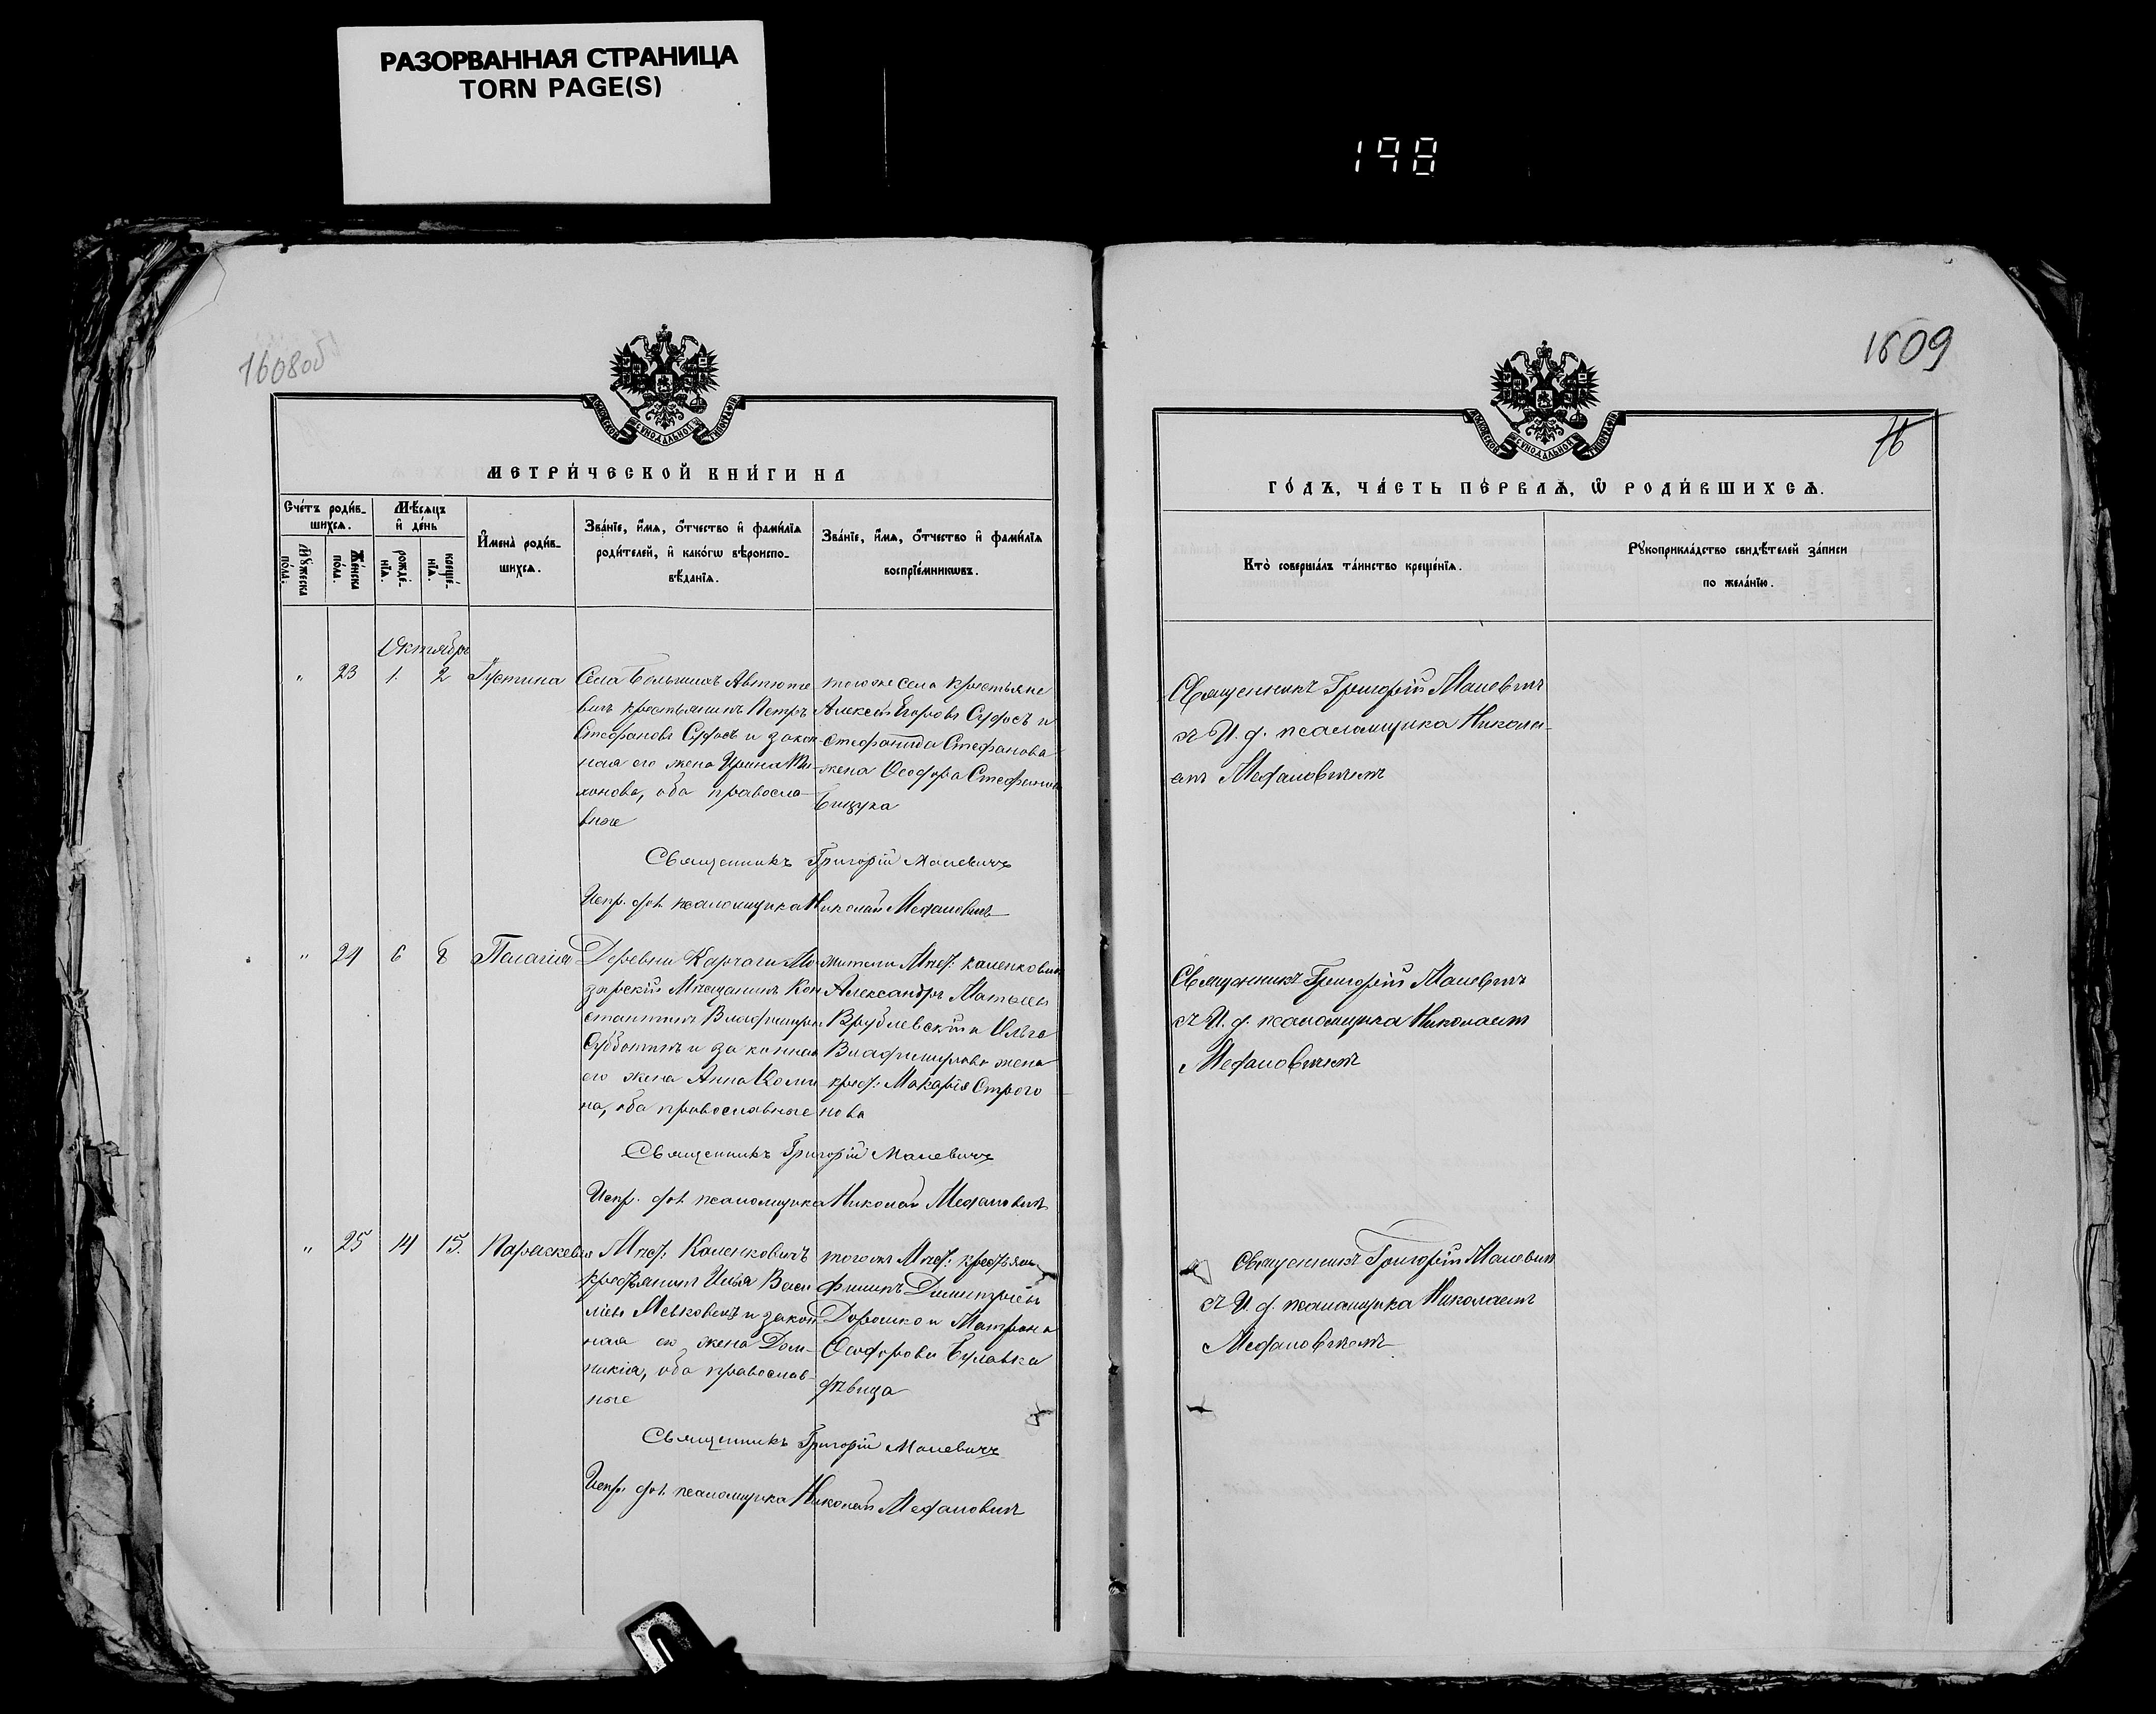 РАЗОРВАННАЯ СТРАНИЦА
TORN PAGE(S)
198
1608об
1609
76
МЕТРИ́ЧЕСКОЙ КНИ́ГИ НА
ГО́ДЪ, ЧА́СТЬ ПЕ́РВАѦ, Ѡ҆ РОДИ́ВШИХСѦ.
Сче́тъ роди́в-
шихсѧ.
Мѣ́сяцъ
и҆ де́нь
Мꙋ́жеска
по́ла.
Же́нска
по́ла.
рожде́-
нїѧ.
креще́-
нїѧ.
И҆мена̀ роди́в-
шихсѧ.
Зва́нїе, и҆́мѧ, ѻ҆́тчество и҆ фами́лїѧ
роди́телей, и҆ како́гѡ вѣроиспо-
вѣ́данїѧ.
Зва́нїе, и҆́мѧ, ѻ҆́тчество и҆ фами́лїѧ
воспрїе́мникѡвъ.
Кто̀ соверша́лъ та́инство креще́нїѧ.
Рꙋкоприкла́дство свидѣ́телей за́писи
по жела́нїю.
Октябрь
" 23 1. 2 Іустина
Села Большихъ Автюте
вичъ крестьянинъ Петръ
Стефановъ Суфосъ и закон
ная его жена Ирина Ти-
хонова, оба правосла-
вные
того же села крестьяне
Алексѣй Егоровъ Суфосъ и
Стефанида Стефанова
жена Ѳеодора Стефанова
Бицука
Священникъ Григорій Малевичъ
съ И. д. псаломщика Никола-
емъ Медаловичемъ
Священникъ Григорій Малевичъ
Испр. дол. псаломщика Николай Медаловичъ
" 24 6 8 Пелагія
Деревни Карчаги Мо-
зырскій Мѣщанинъ Кон
стантинъ Владимировъ
Субботинъ и законная
его жена Анна Ѳоми
на, оба православные
жители Мѣст. Каленковичъ
Александръ Матвѣевъ
Врублевскій и Ольга
Владимирова жена
крест. Макарія Строго
нова
Священникъ Григорій Малевичъ
съ И. д. псаломщика Николаемъ
Медаловичемъ
Священникъ Григорій Малевичъ
Испр. дол. псаломщика Николай Медаловичъ
" 25 14 15. Параскевія
Мѣст. Каленковичъ
крестьянинъ Илья Васи
ліевъ Мевковецъ и закон
ная его жена Дом-
никія, оба православ-
ные
того же Мѣст. крестьяне
Филиппъ Димитріевъ
Дорошко и Матрона
Ѳеодорова Булавка
дѣвица
Священникъ Григорій Малевичъ
съ И. д. псаломщика Николаемъ
Медаловичемъ
Священникъ Григорій Малевичъ
Испр. дол. псаломщика Николай Медаловичъ